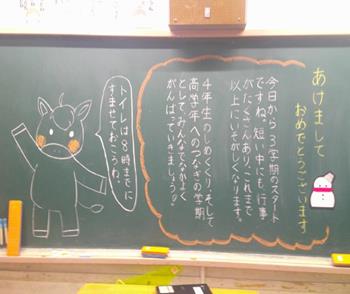 あけまして
おめでとうございます
今日から3学期のスタート
ですね。短い中にも、行事
がたくさんあり、これまで
以上にいそがしくなります。
4年生のしめくくり、そして
高学年へのつなぎの学期
としてみんなでなかよく
がんばっていきましょう。
トイレは8時までに
すませておこうね。